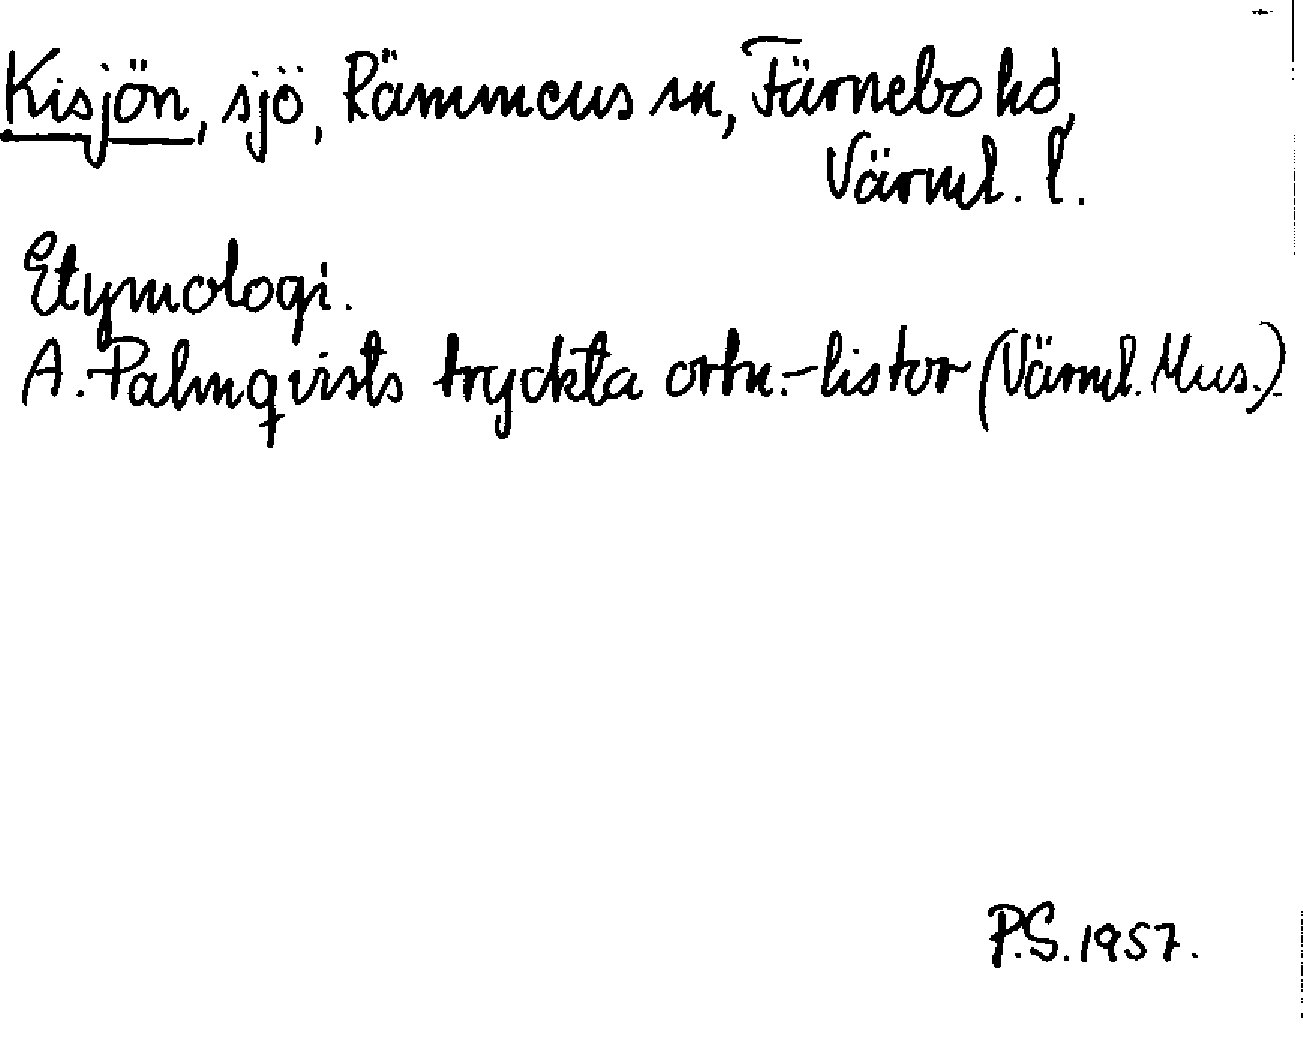 Kisjön, sjö, Rämmens sn, Färnebo hd,
Värml. l.
Etymologi.
A. Palmqvists tryckta ortn.-listor (Värml. Mus.).
P.S. 1957.